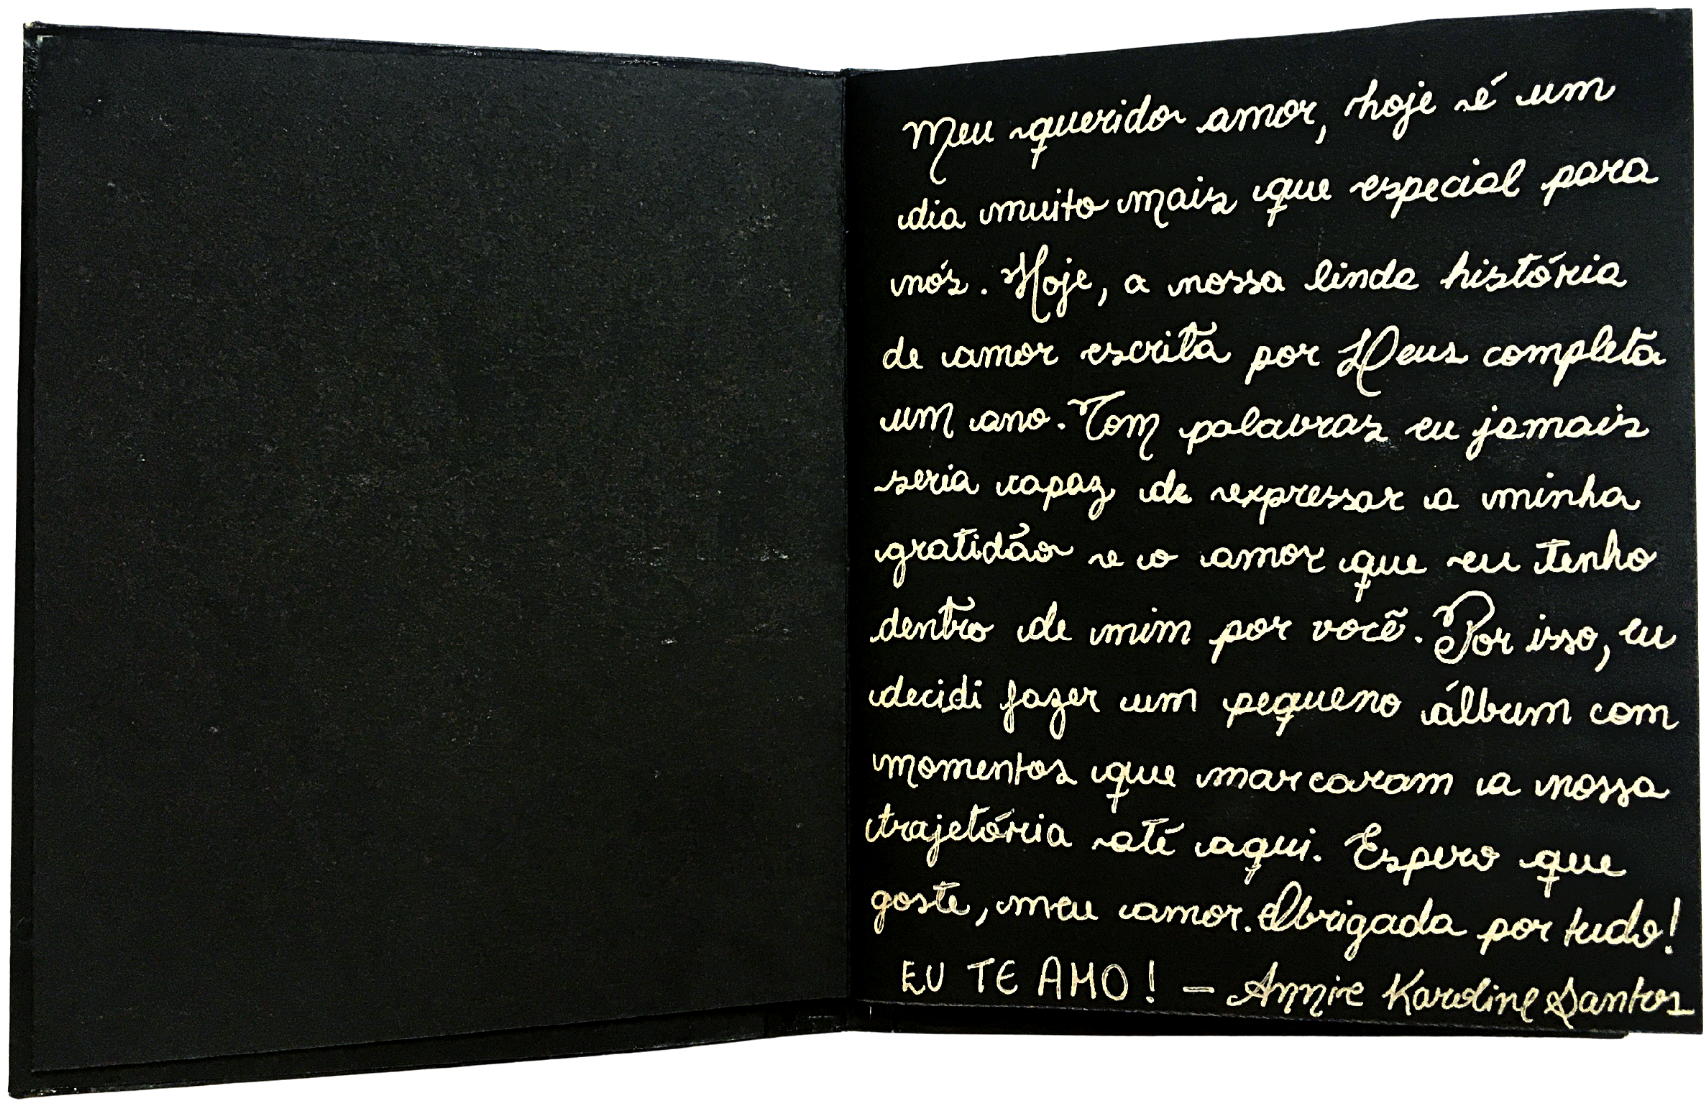 Meu querido amor, hoje é um
dia muito mais que especial para
nós. Hoje, a nossa linda história
de amor escrita por Deus completa
um ano. Com palavras eu jamais
seria capaz de expressar a minha
gratidão e o amor que eu tenho
dentro de mim por você. Por isso, eu
decidi fazer um pequeno álbum com
momentos que marcaram a nossa
trajetória até aqui. Espero que
goste, meu amor. Obrigada por tudo!
EU TE AMO! - Annie Karoline Santos